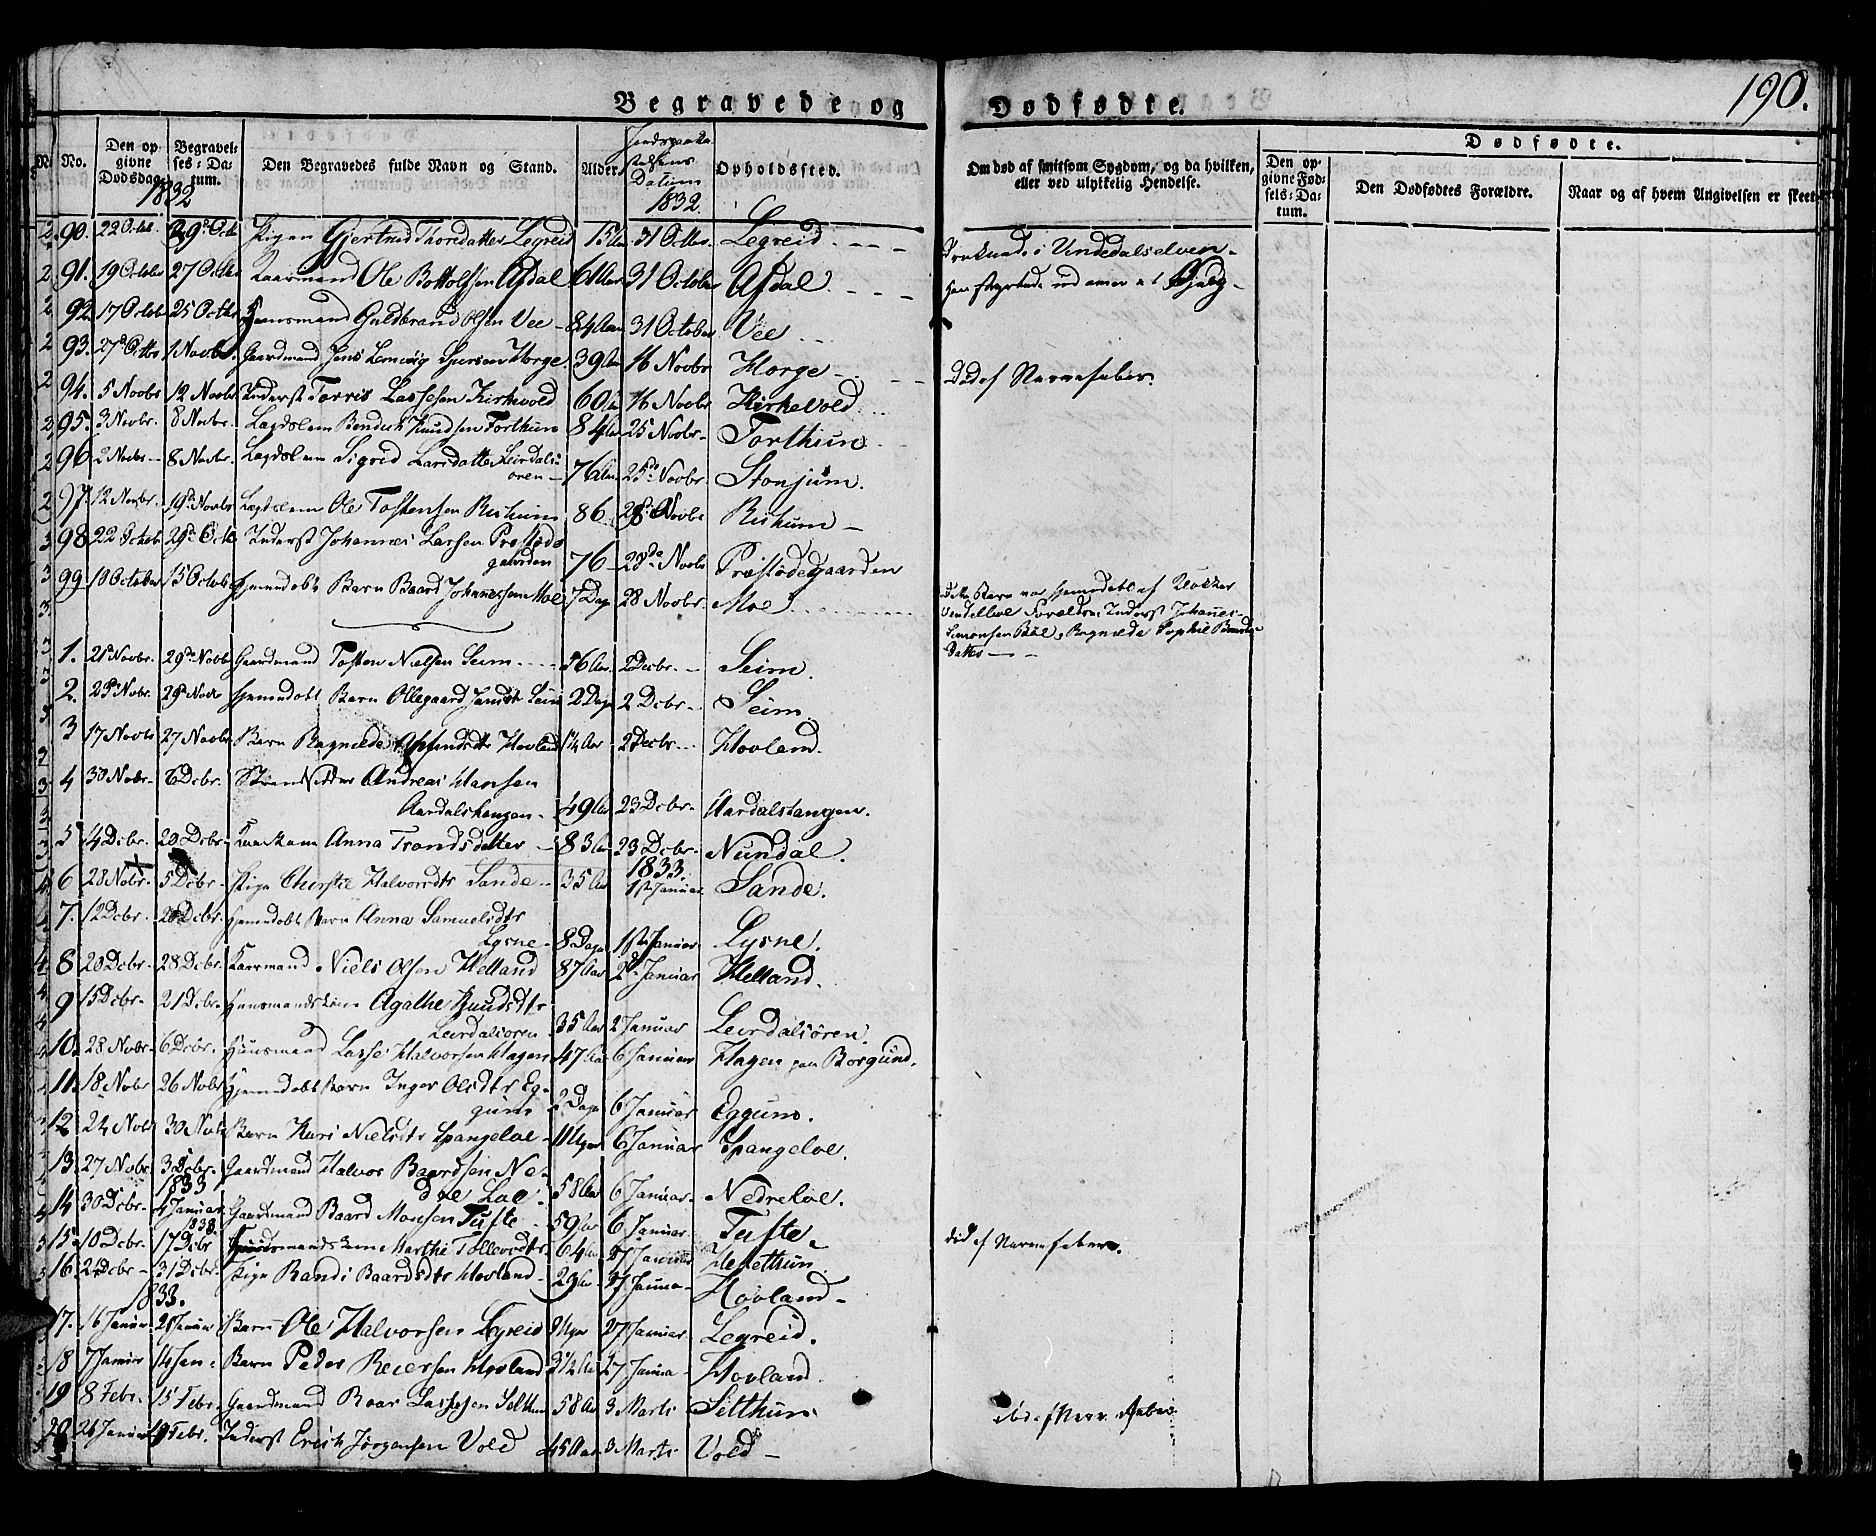 Begravede og Dødfødte.
190.
No. Den opgivne Dødsdag. Begravelses-Datum. Den Begravedes fulde Navn og Stand. Alder. Datum Opholdsted. Om død af smitsom Sygdom, og da hvilken, eller ved ulykkelig Hendelse. Den opgivne Fødsels-Datum. Den Dødfødtes Forældre. Naar og af hvem Angivelsen er skeet
Dødfødte.
1832 1832
90. 22 Octob. 29de Octb Pigen Gjertrud Thoredatter Legreid 15 Aar 31 Octbr. Legreid. i Vindedalselven
91. 19 October 27 Octbr Kaarmand Ole Bottolfsen Afdal 61 Aar 31 October Afdal
92. 17 Octob 25 Octbr Huusmand Guldbrand Olsen Vee 84 Aar 31 October Vee
93. 27de Octbr 1 Novbr. Gaardmand Jens Horge 39 Aar 16 Novbr Horge Død af Nervefeber.
94. 5 Novbr 12 Novbr Inderst Torris Lassesen Kirkevold 60 Aar 16 Novbr Kirkevold
95. 3 Novbr. 8 Novbr. Lægdslem Bendich Knudsen Torthun 84 Aar 25 Novbr. Torthun
96 2 Novbr. 8 Novbr. Lægdslem Sigrid Larsdatter Leirdalsören 76 Aar 25de Novbr Stonjum.
97. 12 Novbr. 19de Novbr Lægdslem Ole Tostensen Rishum 86 28 Novbr Rishum
98 22 Octob 29de Octb Inderst Johannes Larsen Prestegaarden 76 28de Novbr Præstegaarden
99. 10 October 15 Octob Hjemmedøbt Barn Baard Johannessen Moe 7 Dage 28 Novbr. Moe Dette Barn var hjemmedøbt af Klokker Forældre Inderst Johannes Simonsen Ragnilde Sophie datter
1. 21 Novbr. 29de Novb Gaardmand Tosten Nielsen Seim 56 Aar 2 Decbr. Seim.
2. 25de Nobr. 29de Novbr Hjemmedøbt Barn Ollegaard Jansdtr Seim 2 Dage 2 Dcbr. Seim.
3 17 Novbr 27 Novbr. Barn Ragnilde Hovland 1¼ Aar 2 Decbr. Hovland.
4 30 Novbr. 6 Dcbr. Strandsidder Andreas Hansen Aardalstangen 49 Aar 23 Dcbr. Aardalstangen.
5 14 Dcbr. 20 Dcbr. Kaarkone Anna Trondsdatter 83 Aar 23 Dcbr. Nundal.
1833.
6 28 Nobr. 5 Dcbr. Pige Christie Halvordtr Sande 35 Aar 1ste Januar Sande.
7. 12 Dcbr. 20 Dcbr. Hjemmedøbt Barn Anna Samuelsdtr Lysne 8 Dage 1ste Januar Lysne.
8 20 Dcbr. 28 Dcbr. Kaarmand Niels Olsen Helland 87 Aar 2de Januar Helland.
9 15 Dcbr. 21 Dcbr. Huusmandskone Agathe Knudsdtr Leirdalsören 35 Aar 2 Januar Leirdalsören.
10. 28 Novbr. 6 Dcbr. Huusmand Lasse Halvorsen Hagen 47 Aar 6 Januar Hagen paa Borgund.
11. 18 Nobr 26 Nobr Hjemmedøbt Barn Inger Olsdtr Eggum 2 Dage 6 Januar Eggum.
12 24 Nobr 30 Nobr Barn Kari Nielsdtr Spangeloe 11 Uger 6 Januar Spangeloe.
13. 27 Nobr. 3 Dcbr. Gaardmand Halvor Baardsen Nedre Loe 58 Aar 6 Januar Nedreloe.
1833
14 30 Dcbr. 4 Januar Gaardmand Baard Monsen Tufte 59 Aar 6 Januar. Tufte
15. 10 Dcbr. 17 Dcbr Huusmandskone Marthe Tollevsdtr 64 Aar 27 Januar død af Nervefeber.
16. 2 Dcbr. 31 Dcbr. Pige Randi Baardsdtr Hovland 29 Aar 27 Janua Hovland
1833.
17. 16 Januar 21 Januar Barn Ole Halvorsen Legreid 9 Uger 27 Januar. Legreid.
18 7 Januar 14 Jan. Barn Peder Reiersen Hovland 3½ Aar 27 Janua Hovland.
19 8 Febr. 15 Febr. Gaardmand Roar Lassesen Selthun 58 Aar 3 Marts Selthun død af Nervefeber
20. 26 Januar 9 Febr. Inderst Erich Jörgensen Vold 45 Aar 3 Marts Vold